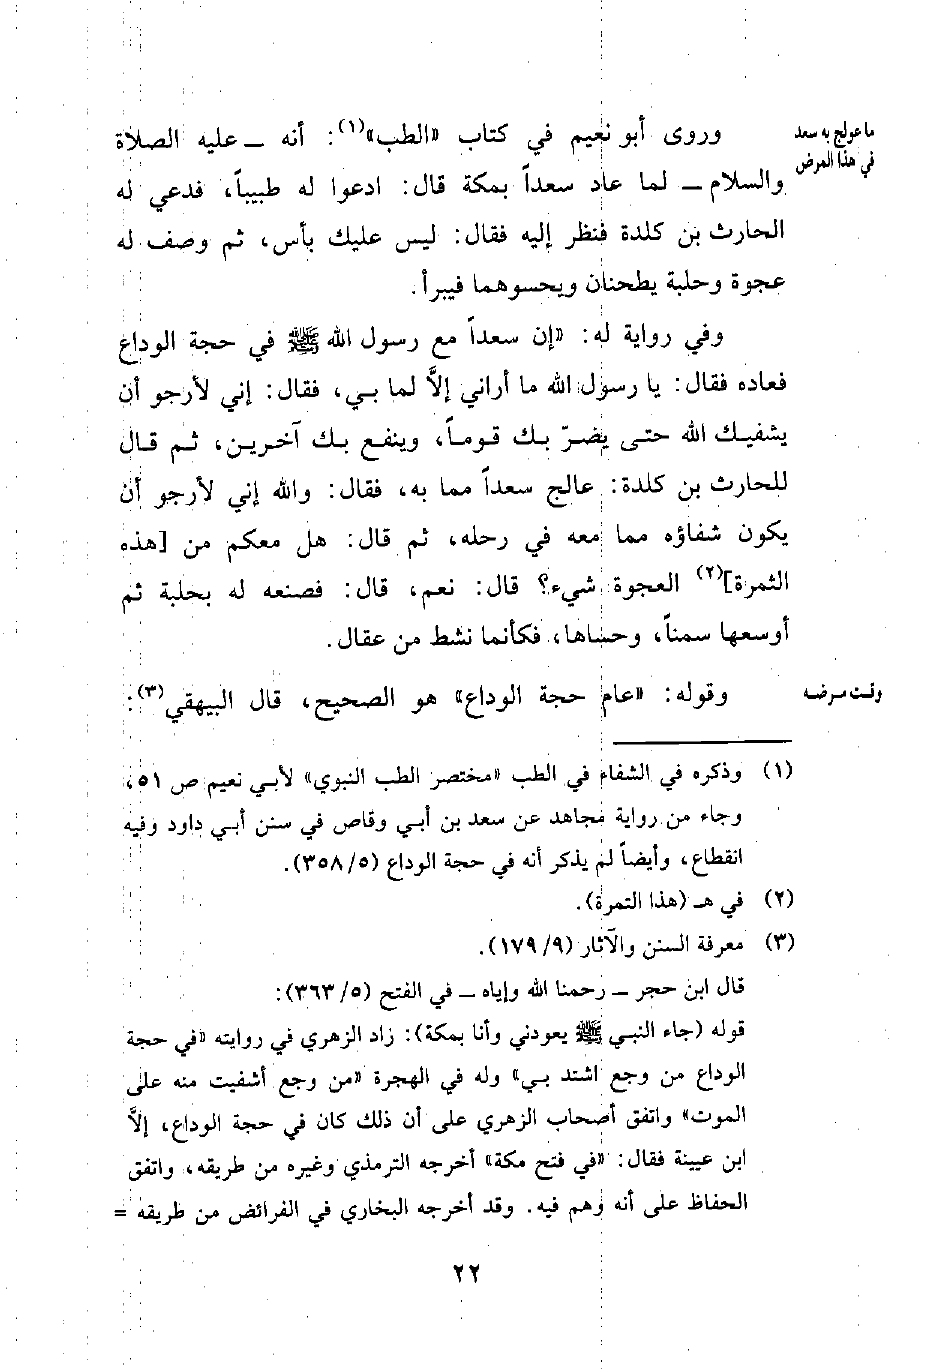 ما عولج به سعد
في هذا المرض
وروى أبو نعيم في كتاب «الطب»(١): أنه ــ عليه الصلاة
والسلام ــ لما عاد سعداً بمكة قال: ادعوا له طبيباً، فدعي له
الحارث بن كلدة فنظر إليه فقال: ليس عليك بأس، ثم وصف له
عجوة وحلبة يطحنان ويحسوهما فيبرأ.
وفي رواية له: «إن سعداً مع رسول الله ﷺ في حجة الوداع
فعاده فقال: يا رسول الله ما أراني إلاَّ لما بي، فقال: إني لأرجو أن
يشفيك الله حتى يضرّ بك قوماً، وينفع بك آخرين، ثم قال
للحارث بن كلدة: عالج سعداً مما به، فقال: والله إني لأرجو أن
يكون شفاؤه مما معه في رحله، ثم قال: هل معكم من [هذه
الثمرة](٢) العجوة شيء؟ قال: نعم، قال: فصنعه له بحلبة ثم
أوسعها سمناً، وحساها، فكأنما نشط من عقال.
وقت مرضه
وقوله: «عام حجة الوداع» هو الصحيح، قال البيهقي(٣):
(١) وذكره في الشفاء في الطب «مختصر الطب النبوي» لأبي نعيم ص ٥١،
وجاء من رواية مجاهد عن سعد بن أبي وقاص في سنن أبي داود وفيه
انقطاع، وأيضاً لم يذكر أنه في حجة الوداع (٣٥٨/٥).
(٢) في هـ (هذا التمرة).
(٣) معرفة السنن والآثار (١٧٩/٩).
قال ابن حجر ــ رحمنا الله وإياه ــ في الفتح (٣٦٣/٥):
قوله (جاء النبي ﷺ يعودني وأنا بمكة): زاد الزهري في روايته «في حجة
الوداع من وجع اشتد بي» وله في الهجرة «من وجع أشفيت منه على
الموت» واتفق أصحاب الزهري على أن ذلك كان في حجة الوداع، إلاَّ
ابن عيينة فقال: «في فتح مكة» أخرجه الترمذي وغيره من طريقه، واتفق
الحفاظ على أنه وهم فيه. وقد أخرجه البخاري في الفرائض من طريقه =
٢٢